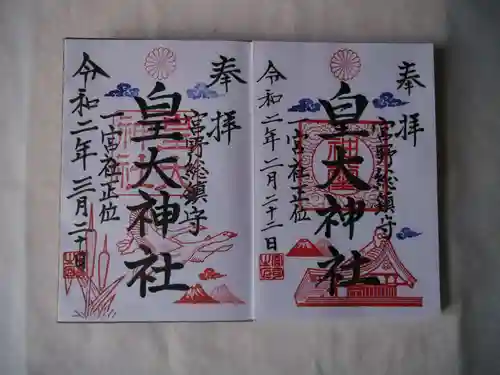 奉拝
宮野総鎮守
皇大神社
一宮社正位
令和二年二月二十二日
奉拝
宮野総鎮守
皇大神社
一宮社正位
令和二年三月二十日